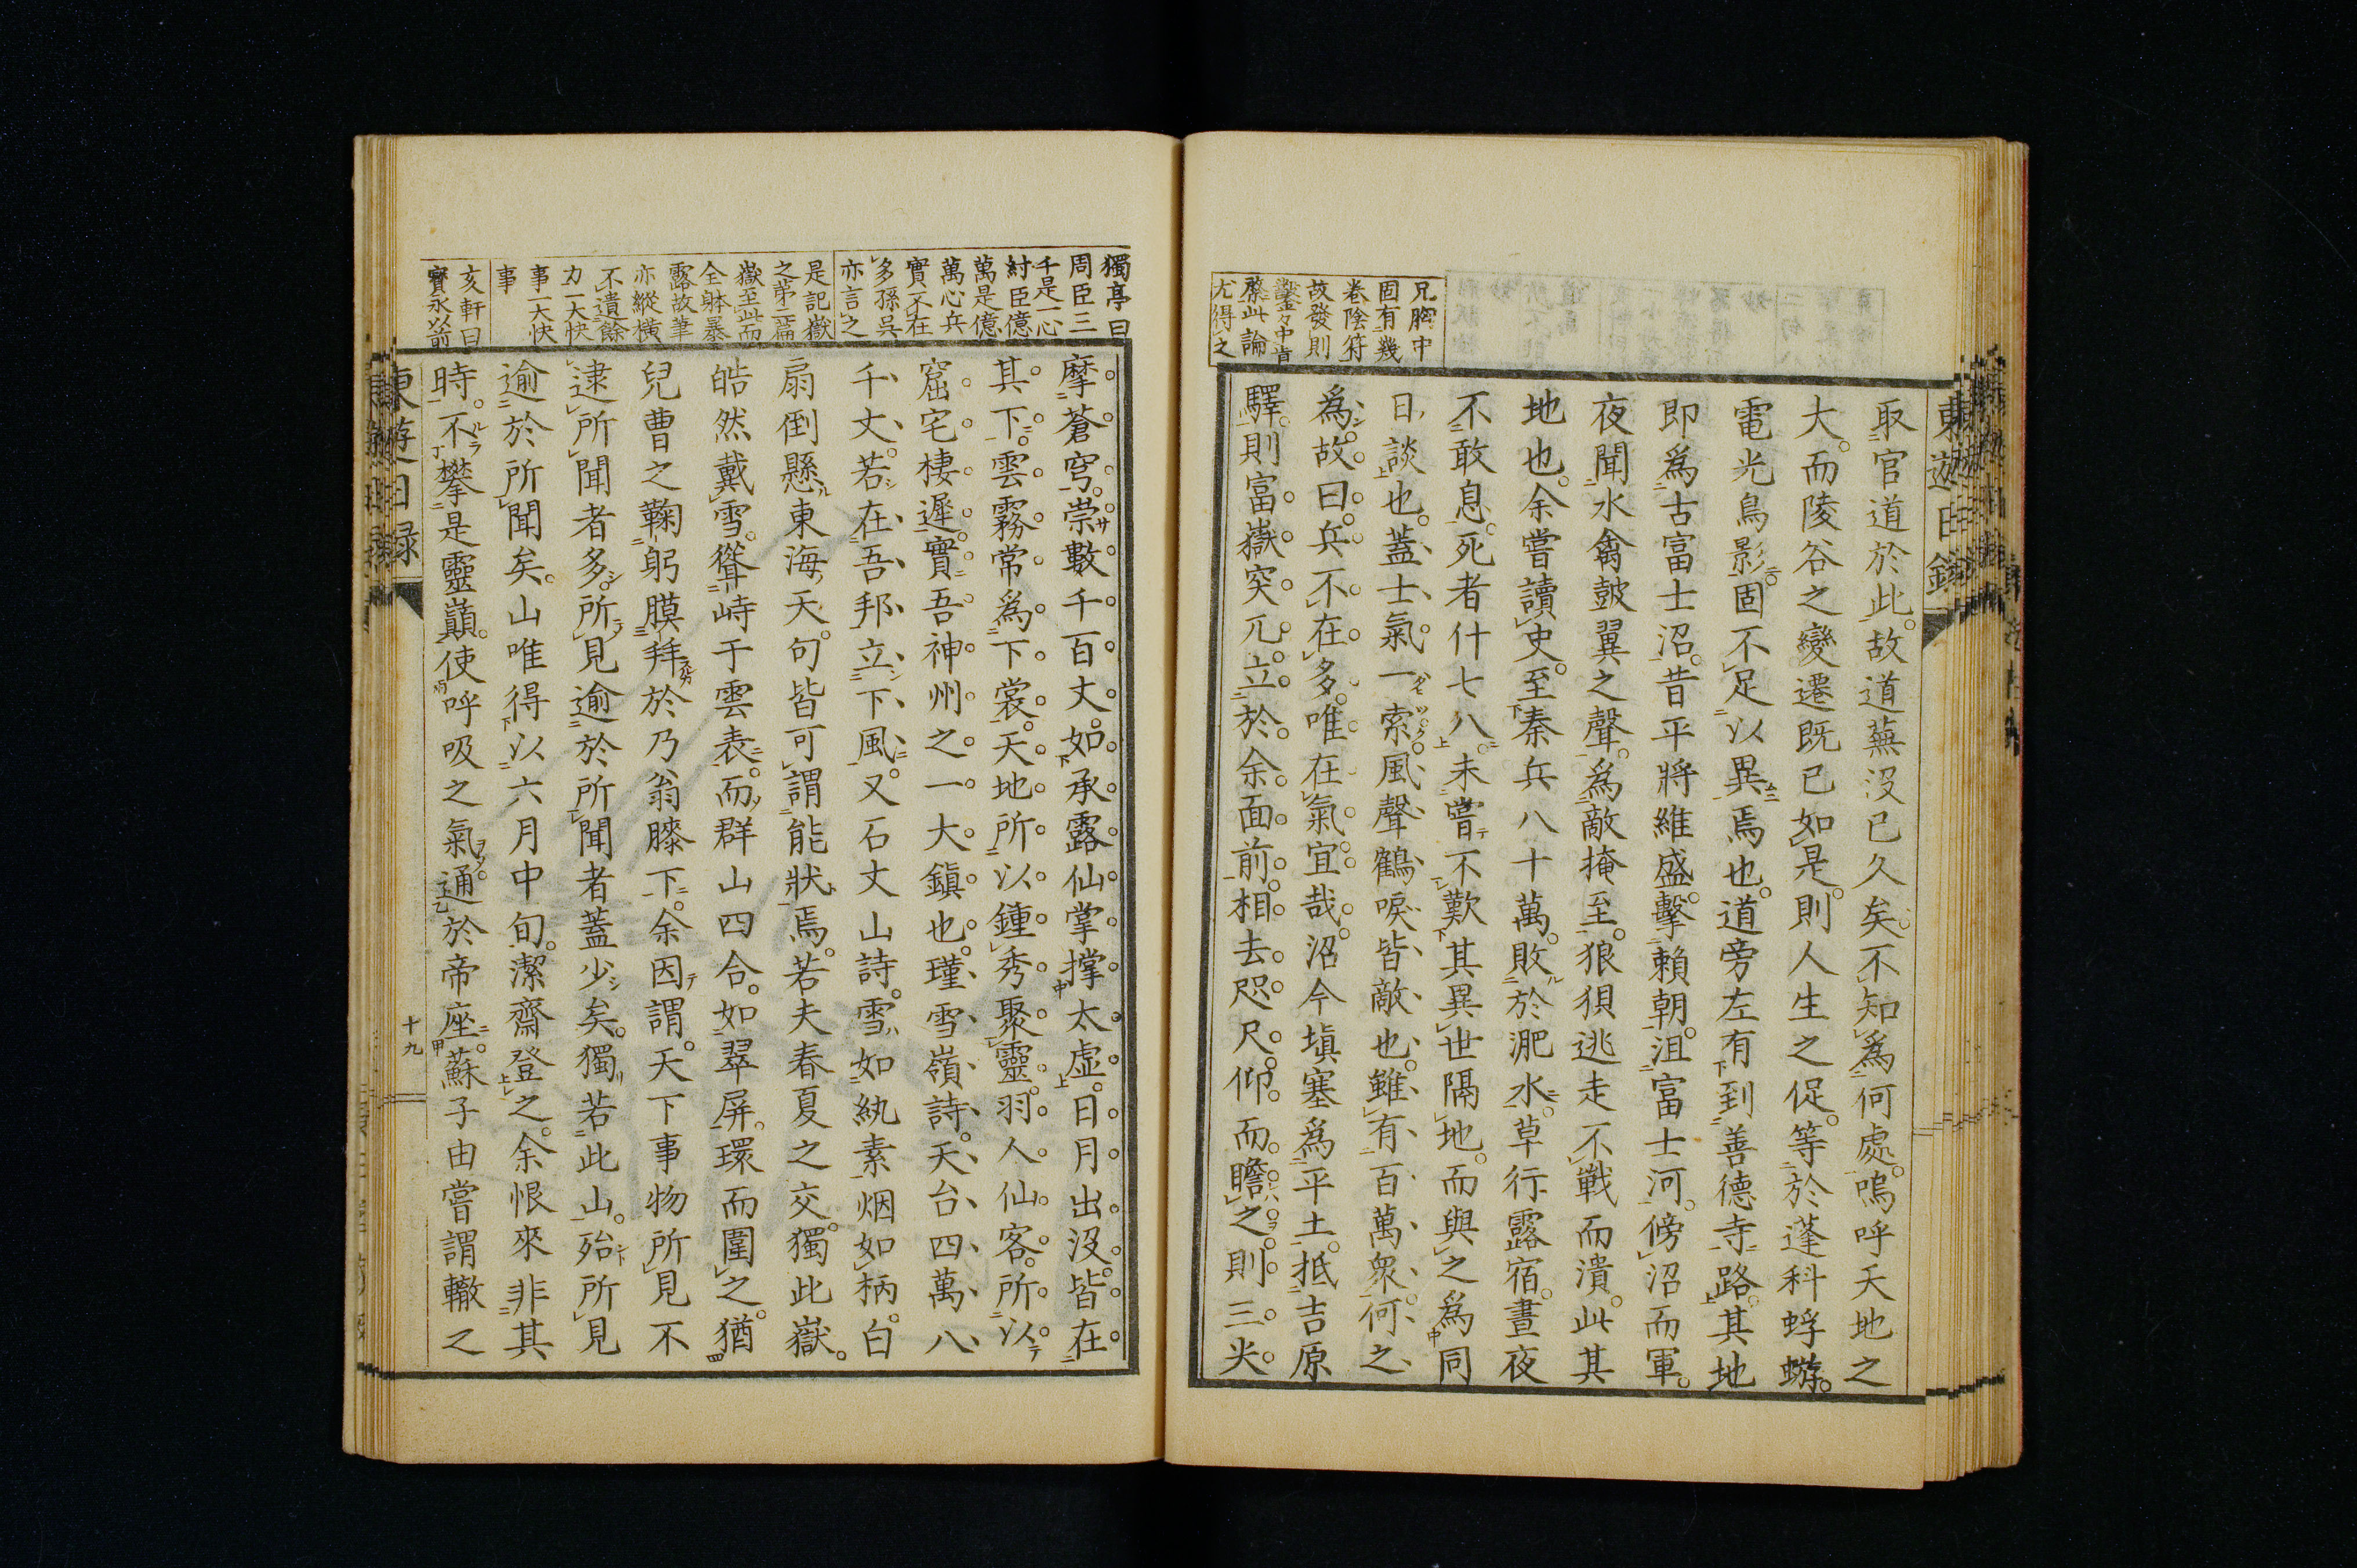 兄胸中
固有幾
卷陰符
故發則
鑿々中肯
縻此論
尤得之
取官道於此故道蕪沒已久矣不知為何處嗚呼天地之
大而陵谷之變遷既已如是則人生之促等於蓬科蜉蝣
電光鳥影固不足以異焉也道旁左有到善德寺路其地
即為古富士沼昔平將維盛擊賴朝沮富士河傍沼而軍
夜聞水禽鼓翼之聲為敵掩至狼狽逃走不戰而潰此其
地也余嘗讀史至秦兵八十萬敗於淝水草行露宿晝夜
不敢息死者什七八未嘗不歎其異世隔地而與之為同
日談也蓋士氣一索風聲鶴唳皆敵也雖有百萬衆何之
為故曰兵不在多唯在氣宜哉沼今塡塞為平土抵吉原
驛則富嶽突兀立於余面前相去咫尺仰而瞻之則三尖
東遊日錄
獨亭曰
周臣三
千是一心
紂臣億
萬是億
萬心兵
實不在
多孫吳
亦言之
是記嶽
之第二篇
嶽至此而
全躰暴
露故筆
亦縱橫
不遺餘
力一大快
事一大快
事
亥軒曰
寶永以前
摩蒼穹崇數千百丈如承露仙掌撑太虛日月出沒皆在
其下雲霧常為下裳天地所以鍾秀聚靈羽人仙客所以
窟宅棲遲實吾神州之一大鎭也瑾雪嶺詩天台四萬八
千丈若在吾邦立下風又石丈山詩雪如紈素烟如柄白
扇倒懸東海天句皆可謂能狀焉若夫春夏之交獨此嶽
皓然戴雪聳峙于雲表而群山四合如翠屏環而圍之猶
兒曹之鞠躬膜拜於乃翁膝下余因謂天下事物所見不
逮所聞者多所見逾於所聞者蓋少矣獨若此山殆所見
逾於所聞矣山唯得以六月中旬潔齋登之余恨來非其
時不攀是靈巔使呼吸之氣通於帝座蘇子由嘗謂轍之
東遊日錄
十九